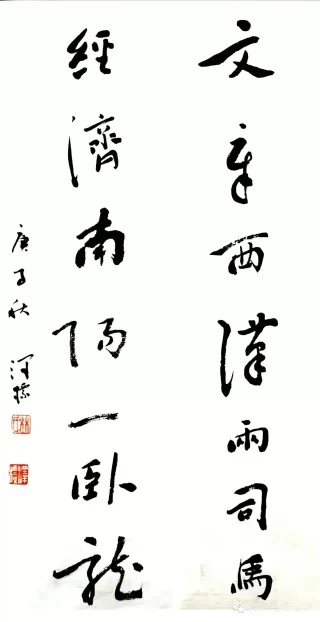 文章西漢兩司馬
經濟南陽一臥龍
庚子秋